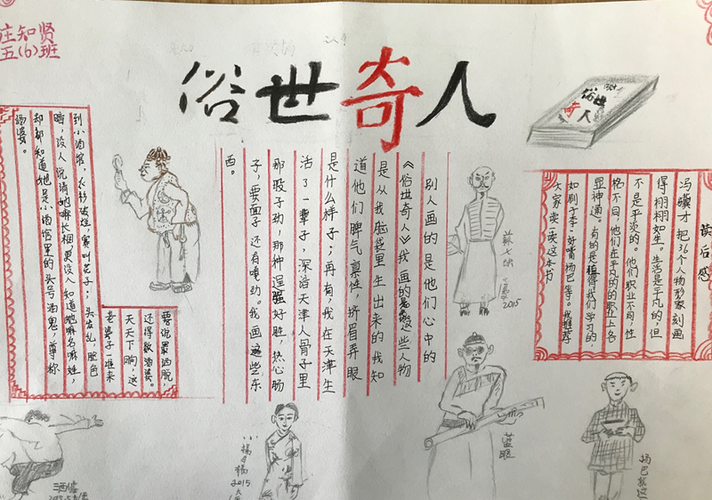 庄知贤
五(6)班
俗世奇人
俗世奇人
要说最洒脱
还得数酒婆。
天天下晌,这
老婆子一准来
到小酒馆,衣衫破烂,赛叫花子;头发乱,脸色
暗,没人说清她嘛长相,更没人知道她嘛名嘛姓,
却都知道她是小酒馆里的头号酒鬼,尊称
酒婆。
别人画的是他们心中的
《俗世奇人》我画的是这些人物
是从我脑袋里生出来的我知
道他们脾气禀性,挤眉弄眼
是什么样子;再有,我在天津生
活了一辈子,深谙天津人骨子里
那股子劲,那种逞强好胜,热心肠
子,要面子还有嘎劲。我画这些东
西。
读后感
冯骥才把36个人物形象刻画
得栩栩如生。生活是平凡的,但
不是平淡的。他们职业不同,性
格不同,他们在平凡的的职业上各
显神通,有的是值得我们学习的,
如刷子李、好嘴杨巴等。我推荐
大家读一读这本书
2015
2015
蓝眼